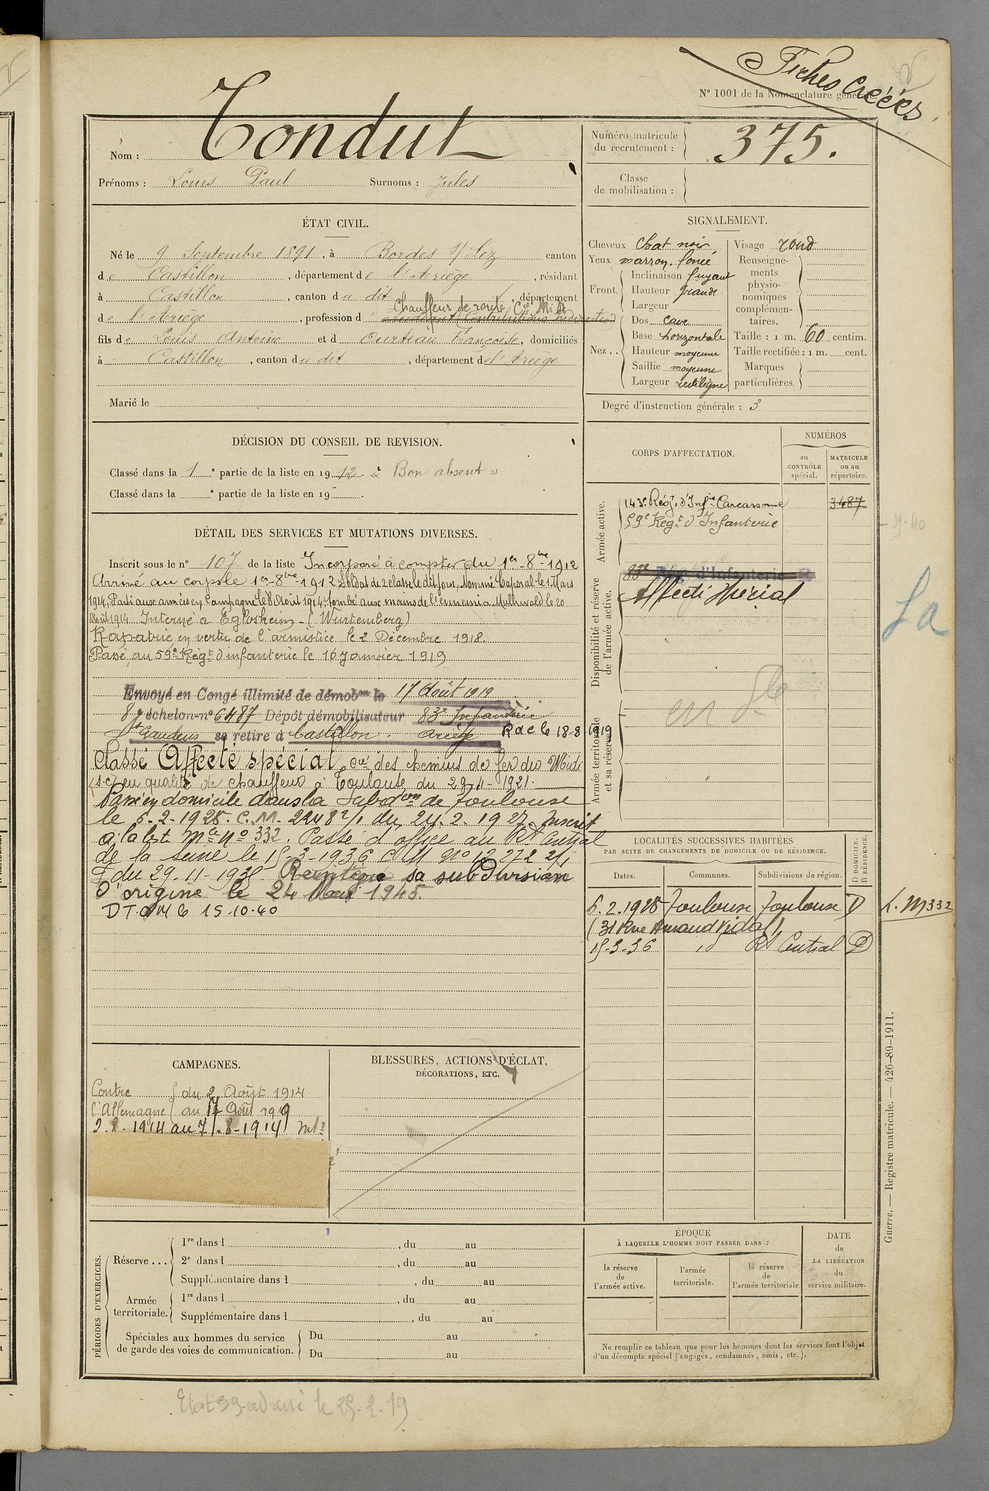 Fiches créées
N° 1001 de la Nomenclature générale.
Nom : Tondut
Prénoms : Louis Paul Surnoms : Jules
Numéro matricule du recrutement : 375.
Classe de mobilisation :
ÉTAT CIVIL.
Né le 9 Septembre 1891, à Bordes s/ Lez canton
de Castillon, département de l'Ariège, résidant
à Castillon, canton du dit, département
Chauffeur de route Cie Midi
de l'Ariège, profession d
fils de Louis Antoine et d Françoise, domiciliés
à Castillon, canton du dit, département de l'Ariège
Marié le
SIGNALEMENT.
Cheveux chat noir
Yeux marron foncé
Front. Inclinaison fuyant
Hauteur grande
Largeur
Nez.. Dos cave
Base horizontale
Hauteur moyenne
Saillie moyenne
Largeur rectiligne
Visage rond
Renseignements physionomiques complémentaires.
Taille : 1 m. 60 centim.
Taille rectifiée : 1 m. cent.
Marques particulières.
Degré d'instruction générale : 3
DÉCISION DU CONSEIL DE REVISION.
Classé dans la 1e partie de la liste en 1912 « Bon absent »
Classé dans la e partie de la liste en 19
CORPS D'AFFECTATION.
NUMÉROS
au CONTRÔLE spécial.
MATRICULE ou au répertoire.
Armée active.
143e Rég. d'Infie Carcassonne 3487
59e Régt d'Infanterie
Disponibilité et réserve de l'armée active.
83e Rég. d'Infanterie
Affecté Spécial
Armée territoriale et sa réserve
La
DÉTAIL DES SERVICES ET MUTATIONS DIVERSES.
Inscrit sous le n° 107 de la liste Incorporé à compter du 1er-8bre-1912
Arrivé au corps le 1er-8bre-1912 Soldat de 2e classe le dit jour, nommé Caporal le 1 Mars
1914, Parti aux armées en Campagne le 8 Août 1914, tombé aux mains de l'ennemi à Mulhwald le 20
Août 1914 Interné à Eglosheim - (Wurtemberg)
Rapatrié en vertu de l'armistice le 2 Décembre 1918
Passé au 59e Régt d'infanterie le 16 Janvier 1919
Envoyé en Congé illimité de démobon le 17 Août 1919
8e échelon n° 6487 Dépôt démobilisateur 83e Infanterie
St Gaudens se retire à Castillon Ariège R de C le 18-8 1919
Classé Affecté spécial Cie des chemins de fer du Midi
(s.c.) en qualité de chauffeur à Toulouse du 29-11-1921.
Passé en domicile dans la Subdon de Toulouse
le 5-2-1928. C.M. 2248 2/1 du 24.2.1927 Inscrit
à la lst Mle n° 332. Passé d'office au Rt Central
de la Seine le 15-3-1936 C M N° 12272 2/1
du 29-11-1935 Réintègre sa subdivision
d'origine le 24 Mai 1945.
D T C M 6 15-10-40
LOCALITÉS SUCCESSIVES HABITÉES
PAR SUITE DE CHANGEMENTS DE DOMICILE OU DE RÉSIDENCE.
Dates. Communes. Subdivisions de région. D DOMICILE. R RÉSIDENCE.
5.2.1928 Toulouse Toulouse D L. M 332
(31 Rue Arnaud Vidal)
15-3-36 id Rt Central D
CAMPAGNES.
Contre l'Allemagne du 2 Août 1914
au 17 Août 1919
BLESSURES, ACTIONS D'ÉCLAT,
DÉCORATIONS, ETC.
PÉRIODES D'EXERCICES.
Réserve... 1re dans l , du au
2e dans l , du au
Supplémentaire dans l , du au
Armée territoriale. 1re dans l , du au
Supplémentaire dans l , du au
Spéciales aux hommes du service de garde des voies de communication. Du au
Du au
ÉPOQUE
À LAQUELLE L'HOMME DOIT PASSER DANS :
la réserve de l'armée active.
l'armée territoriale.
la réserve de l'armée territoriale
DATE de LA LIBÉRATION du service militaire.
Ne remplir ce tableau que pour les hommes dont les services font l'objet
d'un décompte spécial (engagés, condamnés, omis, etc.).
Guerre. — Registre matricule. — 426-89-1911.
Etat 39 adressé le 25.2.19